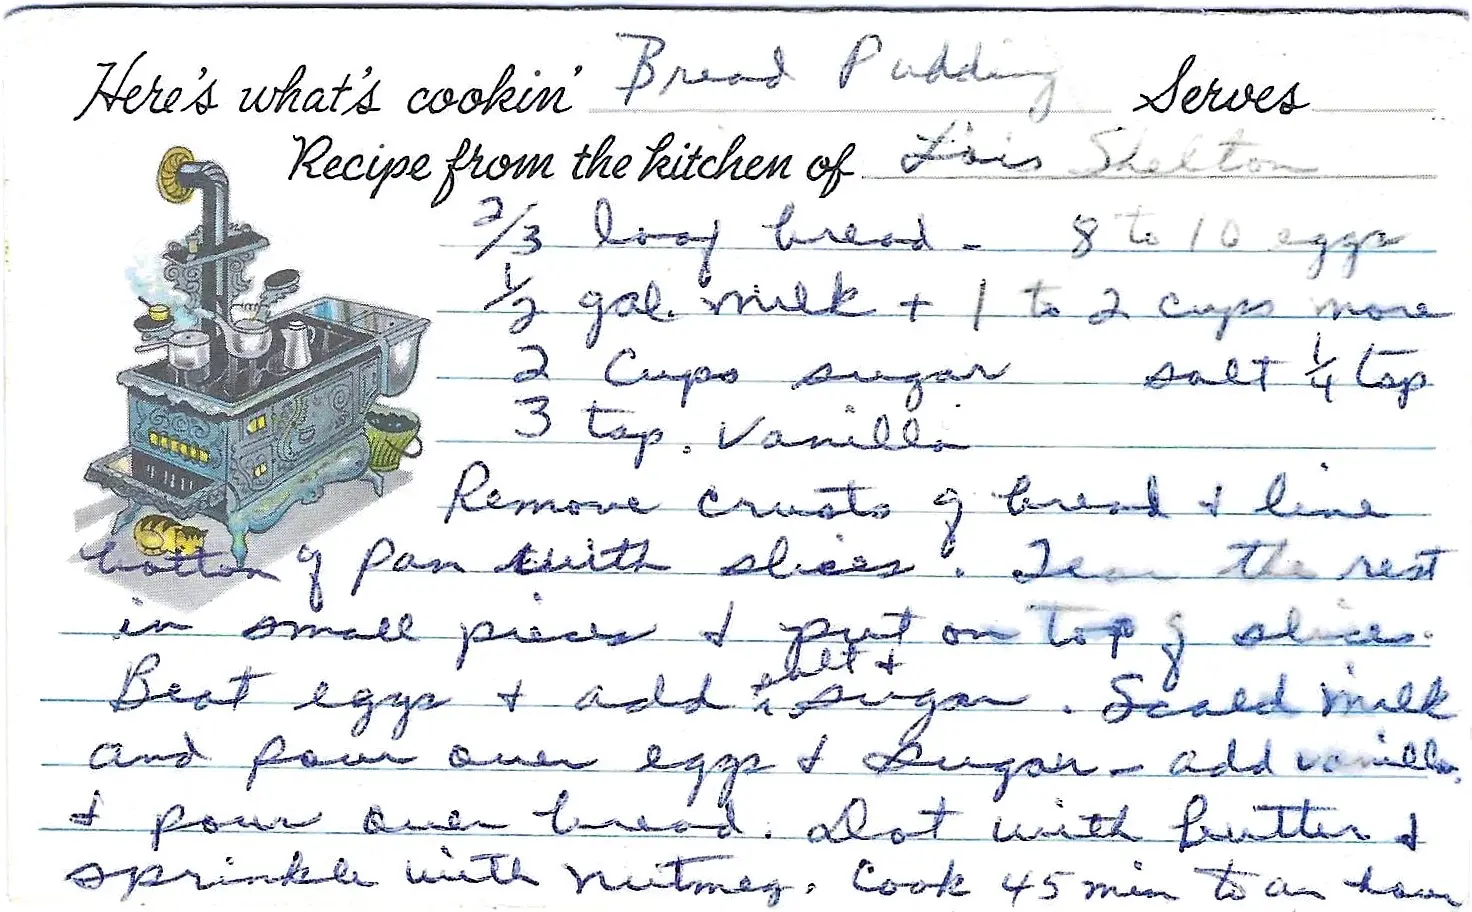 Here's what's cookin' Bread Pudding Serves
Recipe from the kitchen of Lois Shelton
2/3 loaf bread - 8 to 10 eggs
1/2 gal. milk + 1 to 2 cups more
2 Cups sugar salt 1/4 tsp
3 tsp. vanilla
Remove crusts of bread & line
bottom of pan with slices. Tear the rest
in small pieces & put on top of slices.
salt &
Beat eggs & add sugar. Scald milk
and pour over eggs & sugar - add vanilla,
& pour over bread. Dot with butter &
sprinkle with nutmeg. Cook 45 min to an hour